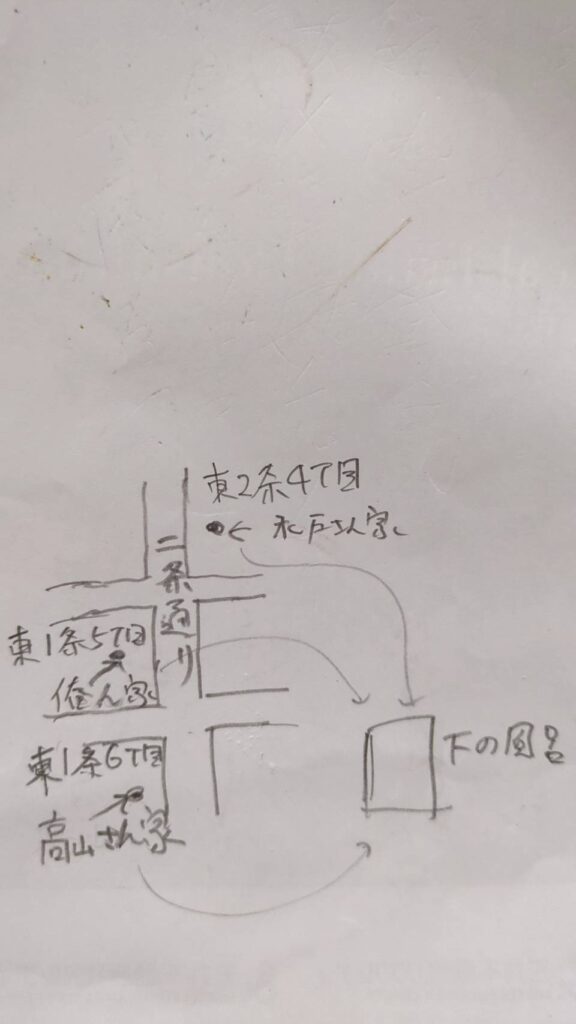 東2条4丁目
水戸さん家
二条通り
東1条5丁目
俺ん家
東1条6丁目
高山さん家
下の風呂